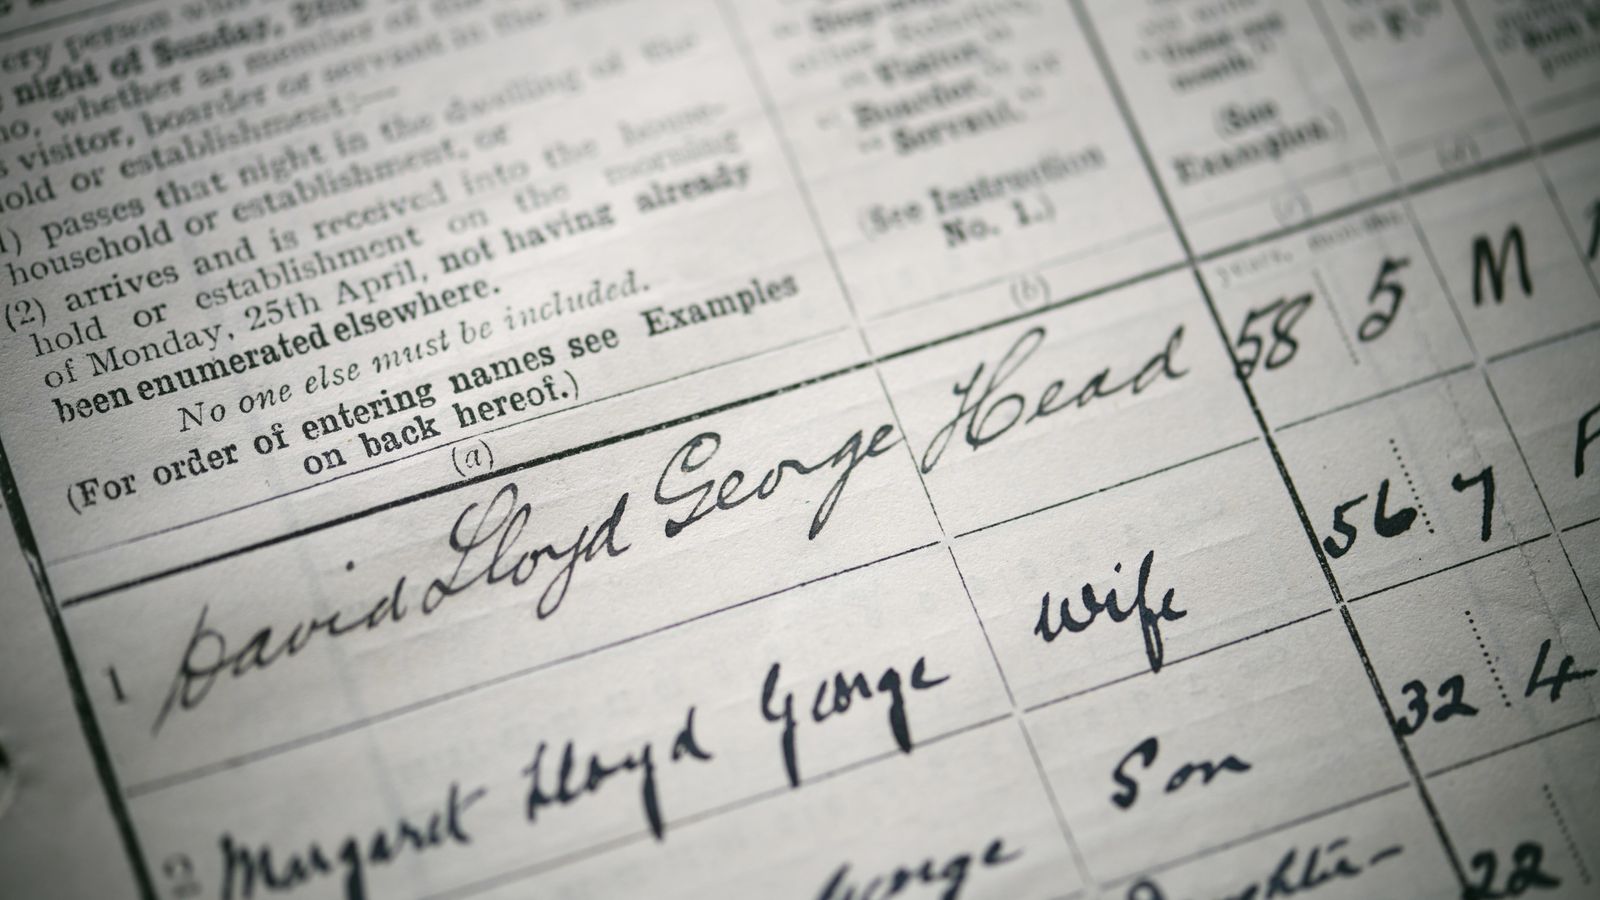 ery person who
night of Sunday, 24th
whether as member of the
visitor, boarder or servant in the
hold or establishment:—
passes that night in the dwelling of the
household or establishment, or
(2) arrives and is received into the house-
hold or establishment on the morning
of Monday, 25th April, not having already
been enumerated elsewhere.
No one else must be included.
(For order of entering names see Examples
on back hereof.)
(a)
"Visitor,"
"Boarder,"
"Servant."
(See Instruction
No. 1.)
(b)
(See
Examples.)
(c)
(d)
years. months.
1 David Lloyd George Head 58 5 M
2 Margaret Lloyd George Wife 56 7 F
George Son 32 4
Daughter 22